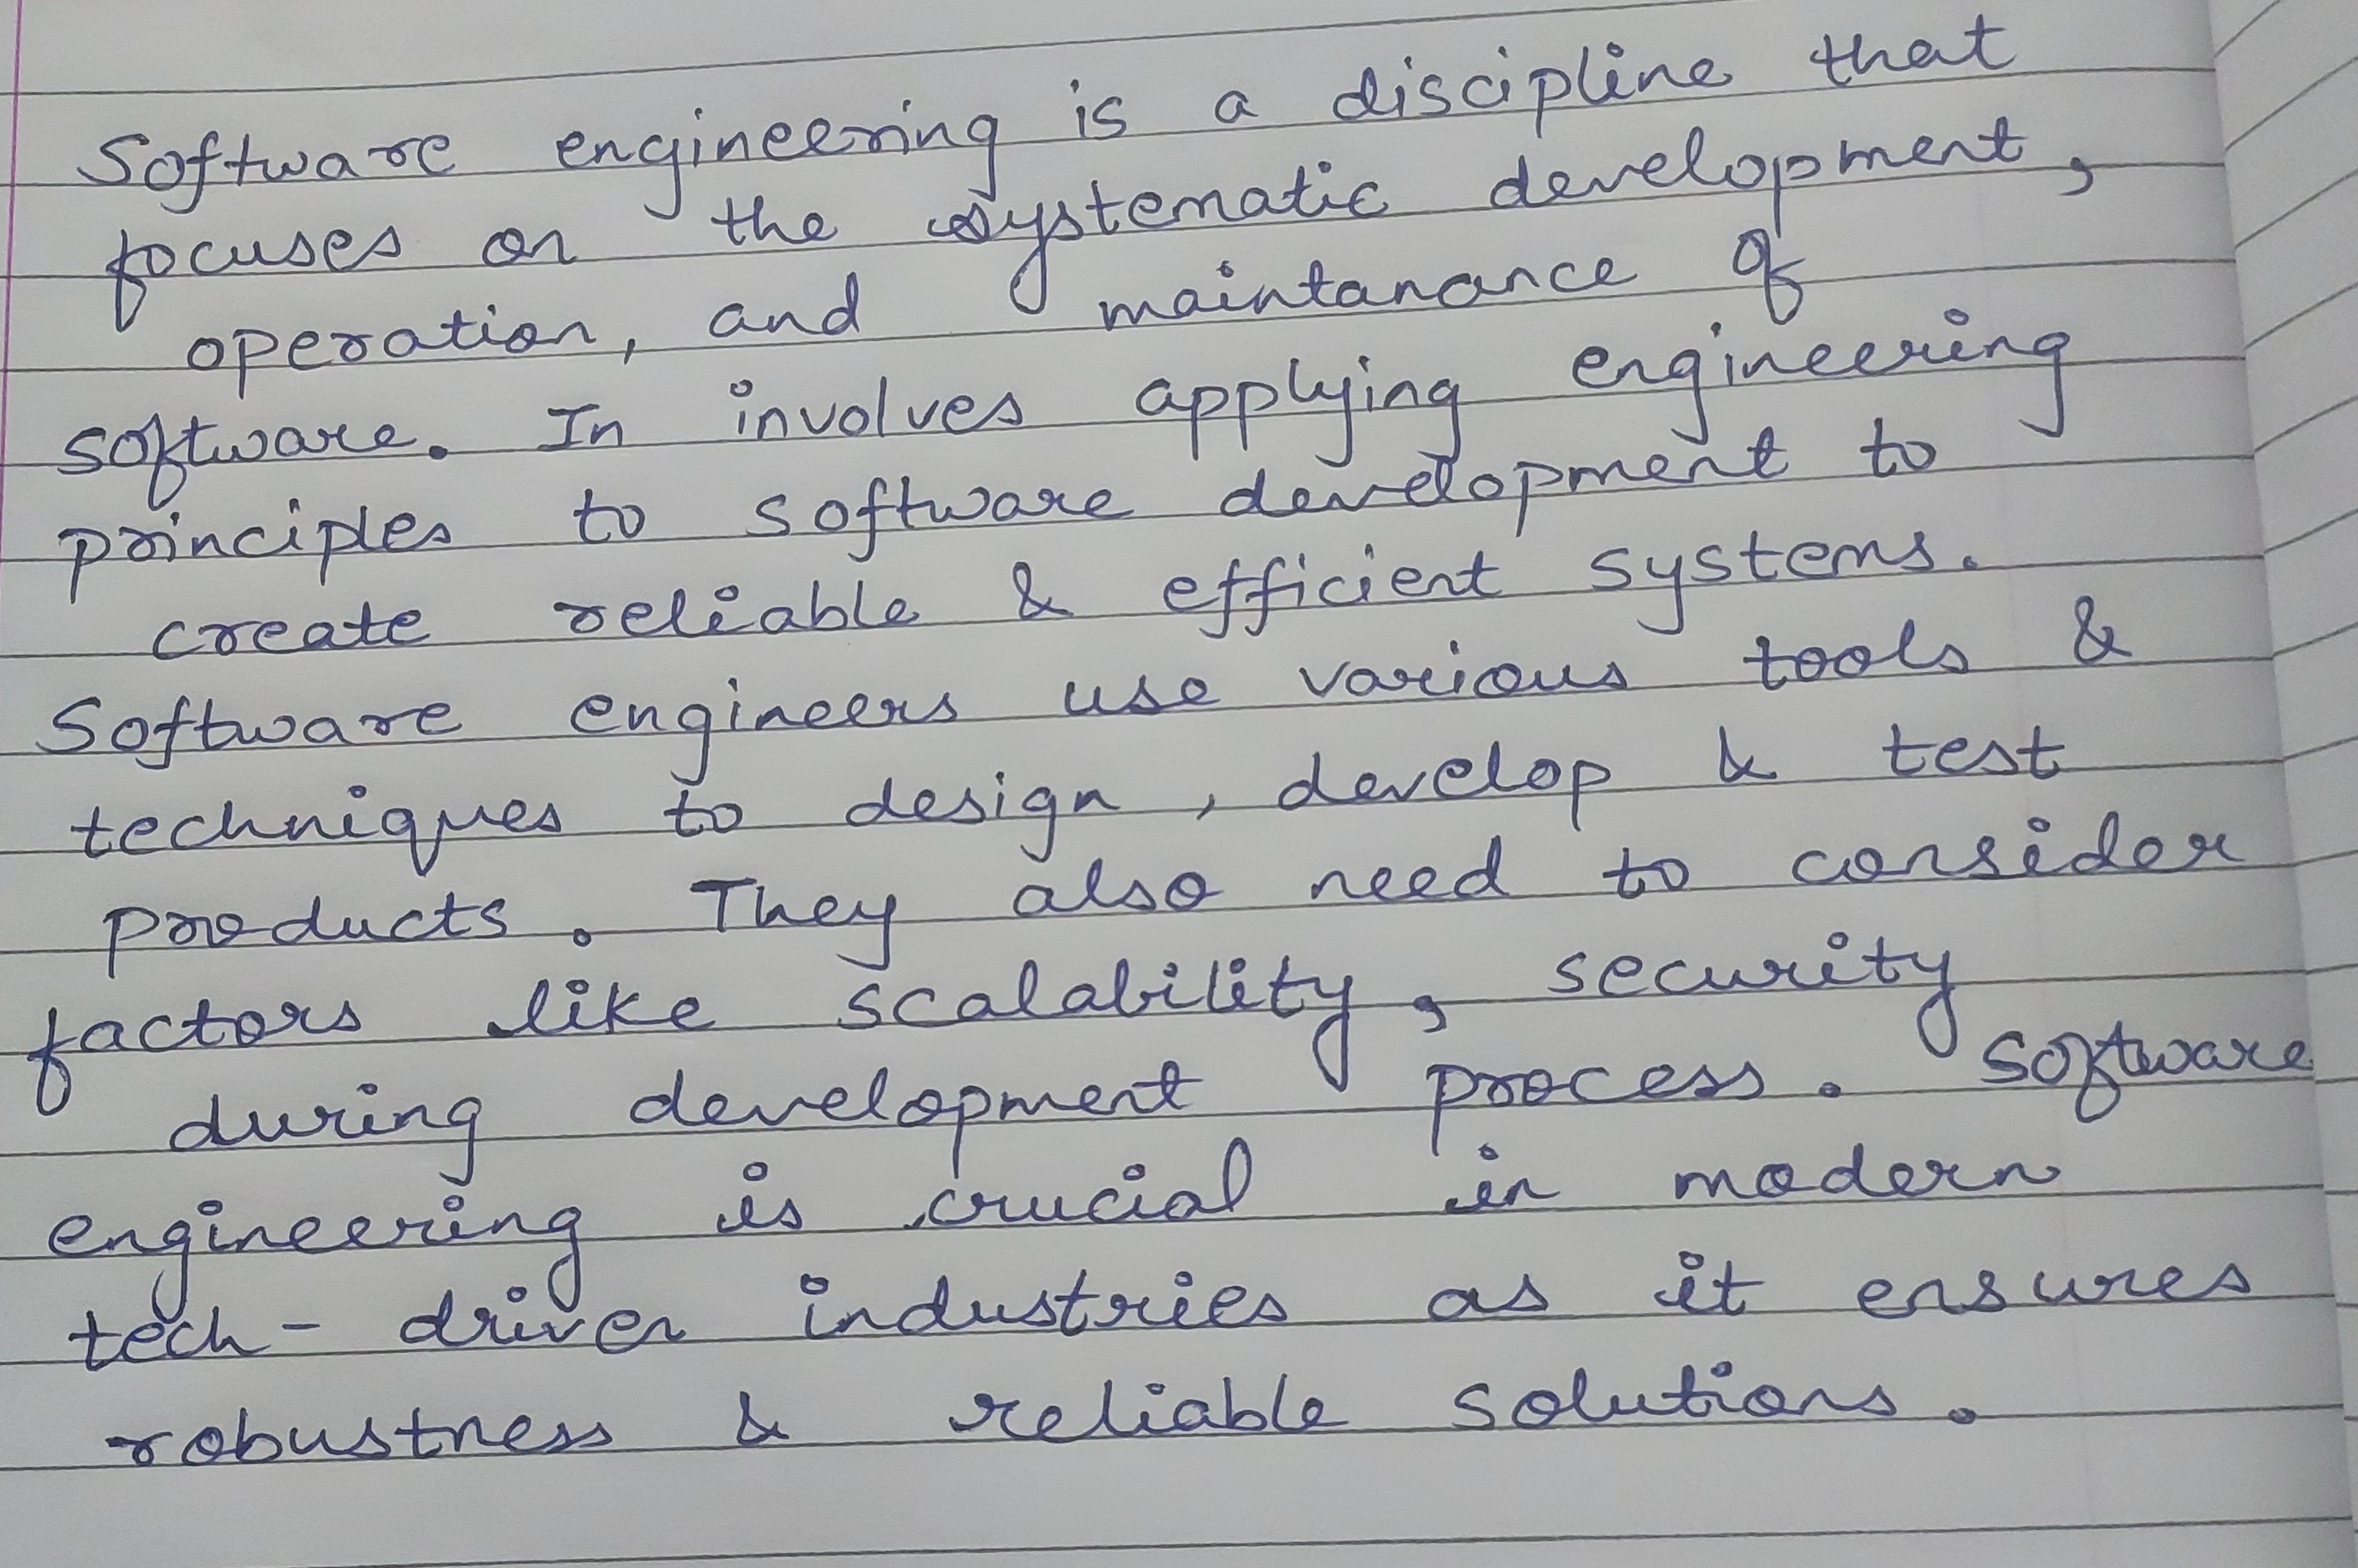 Software engineering is a discipline that
focuses on the systematic development,
operation, and maintanance of
software. In involves applying engineering
principles to software development to
create reliable & efficient systems.
Software engineers use various tools &
techniques to design, develop & test
products. They also need to consider
factors like scalability, security
during development process. Software
engineering is crucial in modern
tech-driven industries as it ensures
robustness & reliable solutions.